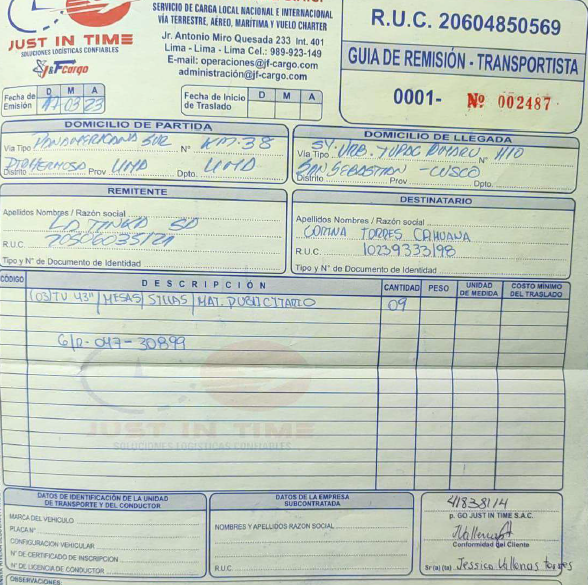 SERVICIO DE CARGA LOCAL NACIONAL E INTERNACIONAL
VÍA TERRESTRE, AÉREO, MARÍTIMA Y VUELO CHARTER
JUST IN TIME
SOLUCIONES LOGÍSTICAS CONFIABLES
J&F Cargo
Jr. Antonio Miro Quesada 233 Int. 401
Lima - Lima - Lima Cel.: 989-923-149
E-mail: operaciones@jf-cargo.com
administración@jf-cargo.com
R.U.C. 20604850569
GUIA DE REMISIÓN - TRANSPORTISTA
0001- Nº 002487
Fecha de Emisión D M A
17 03 23
Fecha de Inicio de Traslado D M A
DOMICILIO DE PARTIDA
Vía Tipo PANAMERICANA SUR Nº KM. 38
Distrito Prov LIMA Dpto. LIMA
DOMICILIO DE LLEGADA
Vía Tipo URB. TUPAC AMARU Nº H10
SAN SEBASTIAN - CUSCO
Distrito Prov Dpto.
REMITENTE
Apellidos Nombres / Razón social
R.U.C.
Tipo y N° de Documento de Identidad
DESTINATARIO
Apellidos Nombres / Razón social
CORINA TORRES CAHUANA
R.U.C. 10239333198
Tipo y N° de Documento de Identidad
CÓDIGO DESCRIPCIÓN CANTIDAD PESO UNIDAD DE MEDIDA COSTO MÍNIMO DEL TRASLADO
(03) TV 43" | MESAS | SILLAS | MAT. PUBLICITARIO 09
G/R- 047- 30899
JUST IN TIME
SOLUCIONES LOGISTICAS CONFIABLES
DATOS DE IDENTIFICACIÓN DE LA UNIDAD DE TRANSPORTE Y DEL CONDUCTOR
MARCA DEL VEHICULO
PLACA N°
CONFIGURACIÓN VEHICULAR
N° DE CERTIFICADO DE INSCRIPCION
N° DE LICENCIA DE CONDUCTOR
DATOS DE LA EMPRESA SUBCONTRATADA
NOMBRES Y APELLIDOS RAZON SOCIAL
R.U.C.
41838114
p. GO JUST IN TIME S.A.C.
Conformidad del Cliente
Sr(a) (ta) Jessica Villenas Torres
OBSERVACIONES